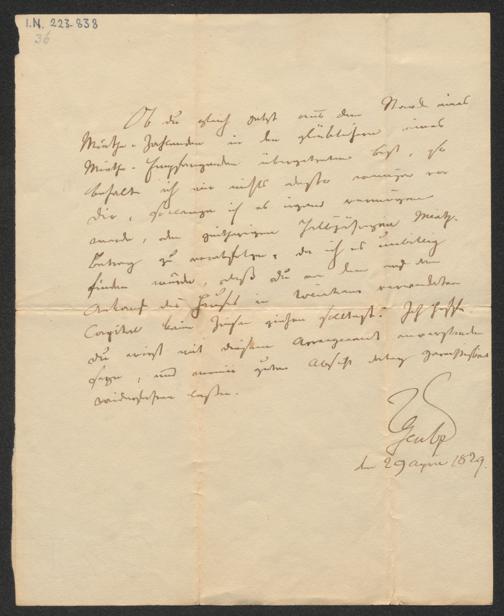 I.N. 223.838
36
Ob du gleich jetzt aus dem Stande eines
Mieth-Zahlenden in den glücklichern eines
Mieth-Empfangenden übergetreten bist, so
behalte ich mir nichts desto weniger vor
Dir, solange ich es irgend vermögen
werde, den halbjährigen Mieth-
betrag zu, da ich es unbillig
finden würde, daß du an dem auf den
Ankauf des Hauses in verwendeten
Capital keine Zinsen ziehen solltest. Ich hoffe
du wirst mit diesem Arrangement einverstanden
seyn, und meiner guten Absicht
widerfahren lassen.
den 29 1829.